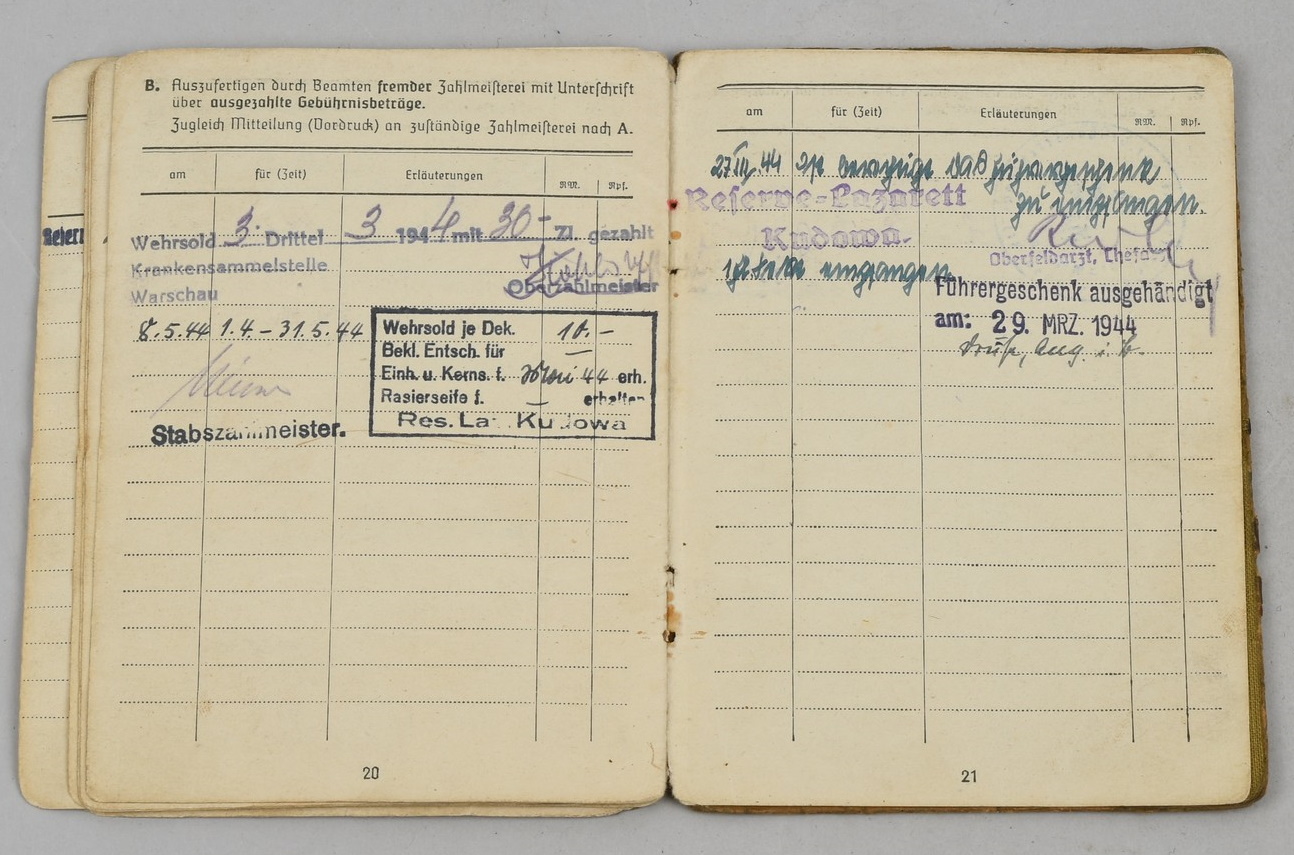 B. Auszufertigen durch Beamten fremder Zahlmeisterei mit Unterschrift
über ausgezahlte Gebührnisbeträge.
Zugleich Mitteilung (Vordruck) an zuständige Zahlmeisterei nach A.
am für (Zeit) Erläuterungen RM. Rpf.
Wehrsold 3. Drittel 3 1944 mit 30- Zl. gezahlt
Krankensammelstelle
Warschau Oberzahlmeister
8.5.44 1.4. – 31.5.44
Wehrsold je Dek. 10.–
Bekl. Entsch. für –
Einh. u. Kerns. f. Mai 44 erh.
Rasierseife f. – erhalten
Res. Laz. Kudowa
Stabszahlmeister.
20
am für (Zeit) Erläuterungen RM. Rpf.
27.III.44 Ist berechtigt das
zu empfangen.
Reserve-Lazarett
Kudowa.
Oberfeldarzt, Chefarzt
empfangen
Führergeschenk ausgehändigt
am: 29. MRZ. 1944
21